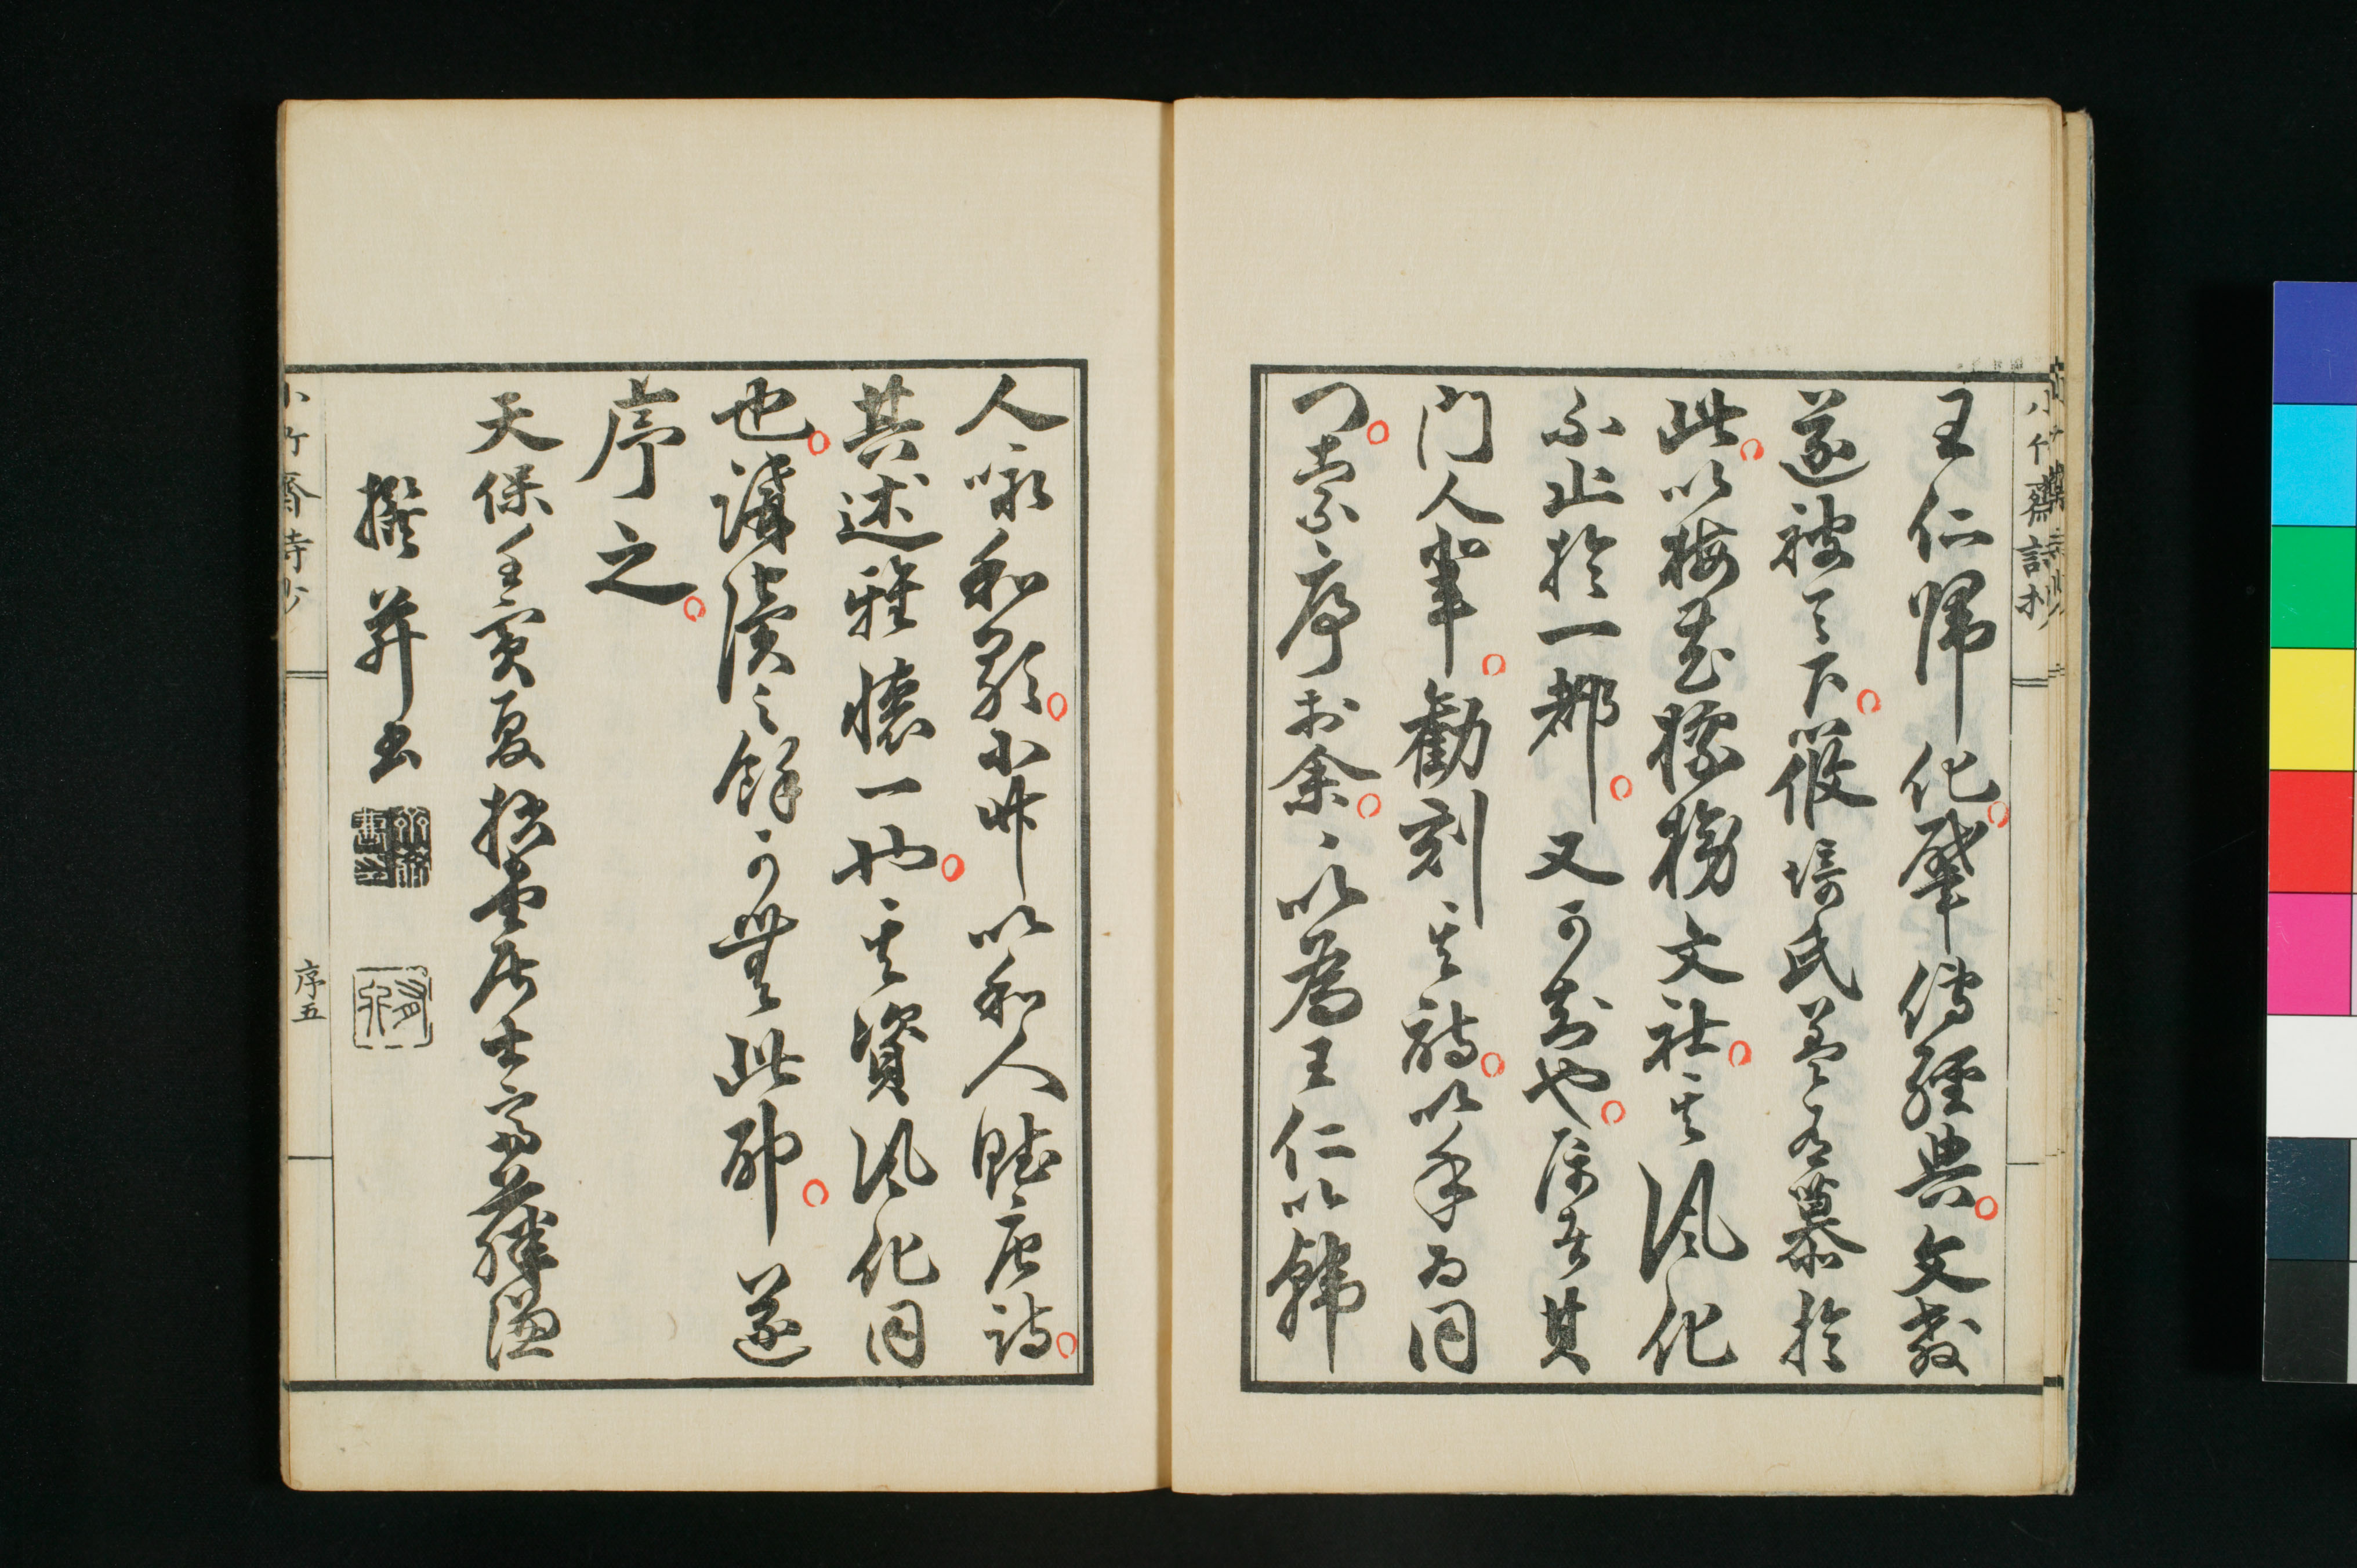 小竹齋詩抄
王仁歸化。肇傳經典。文教
遂被天下。筱埼氏蓋有慕於
此。以梅花標榜文社。其風化
不止於一都。又可知也。属者其
門人輩。勸刻其詩。以余為同
門。索序於余。以為王仁以韓
人咏和歌。小竹以和人賦唐詩。
其述雅懷一也。其資風化同
也。講讀之餘可無此耶。遂
序之。
天保壬寅夏拙堂居士齋藤謙
撰并書
小竹齋詩抄
序五